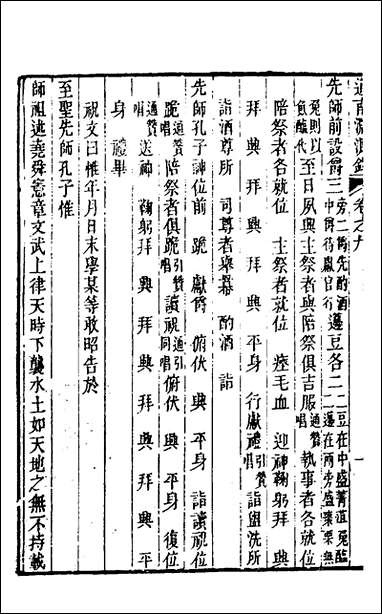 道南淵源錄 卷之九 一
先師前設爵三旁二爵先酌酒中爵待獻官行籩豆各二二豆在中盛菁菹兔醢二籩在兩旁盛棗栗無
兔則以魚醢代至日夙興主祭者與陪祭俱吉服通贊唱執事者各就位
陪祭者各就位 主祭者就位 瘞毛血 迎神鞠躬拜 興
拜 興 拜 興 拜 興 平身 行獻禮引贊唱詣盥洗所
詣酒尊所 司尊者舉冪 酌酒 詣
先師孔子神位前 跪 獻爵 俯伏 興 平身 詣讀祝位
跪通贊唱陪祭者俱跪引贊唱讀祝通引同唱俯伏 興 平身 復位
通贊唱送神 鞠躬拜 興 拜 興 拜 興 拜 興 平
身 禮畢
祝文曰惟年月日末學某等敢昭告於
至聖先師孔子惟
師祖述堯舜憲章文武上律天時下襲水土如天地之無不持載